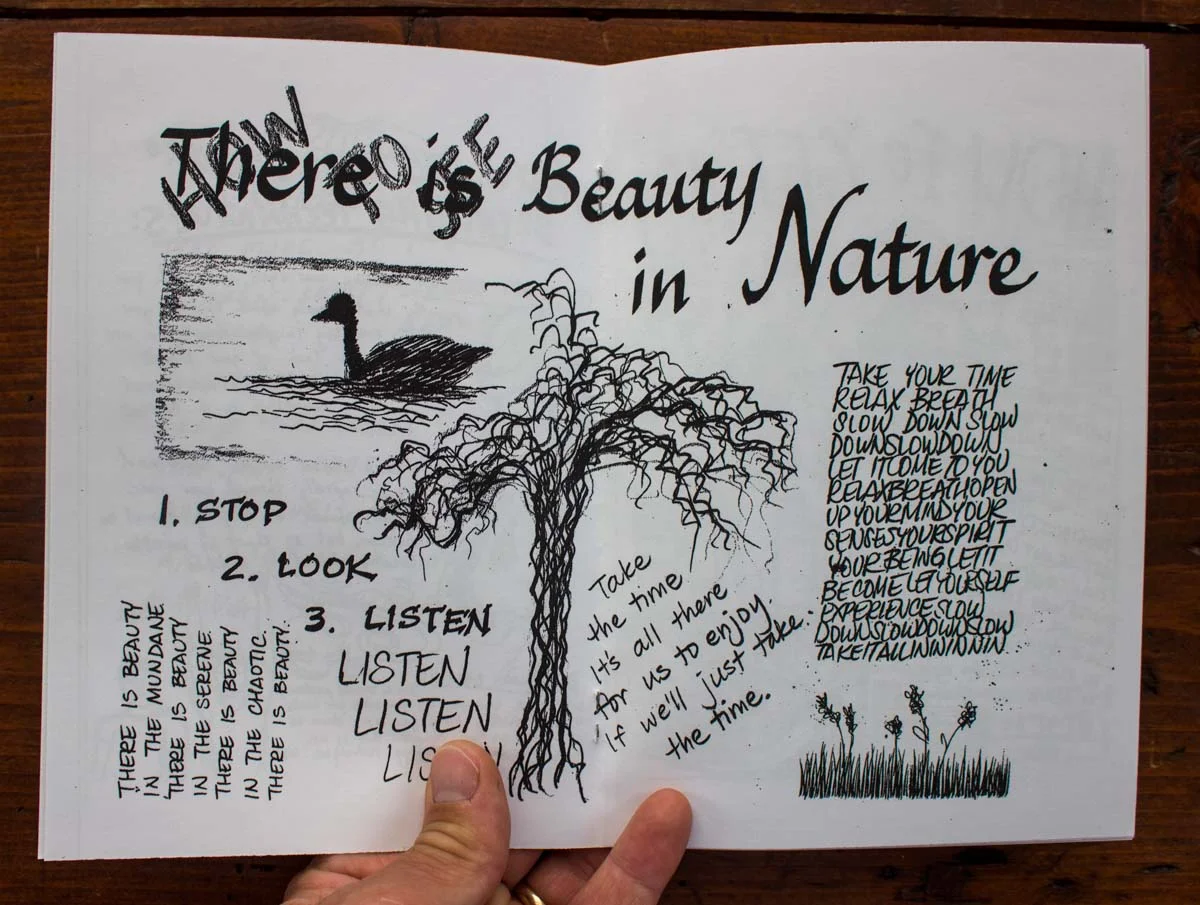 HOW TO SEE
There is Beauty
in Nature
1. STOP
2. LOOK
3. LISTEN
LISTEN
LISTEN
THERE IS BEAUTY
IN THE MUNDANE
THERE IS BEAUTY
IN THE SERENE.
THERE IS BEAUTY
IN THE CHAOTIC.
THERE IS BEAUTY.
Take
the time
It's all there
for us to enjoy.
If we'll just take.
the time.
TAKE YOUR TIME
RELAX BREATH
SLOW DOWN SLOW
DOWNSLOWDOWN
LET ITCOME TO YOU
RELAXBREATHOPEN
UP YOURMINDYOUR
SENSESYOURSPIRIT
YOURBEINGLETIT
BECOME LETYOURSELF
EXPERIENCESLOW
DOWNSLOWDOWNSLOW
TAKEITALLINININNIN